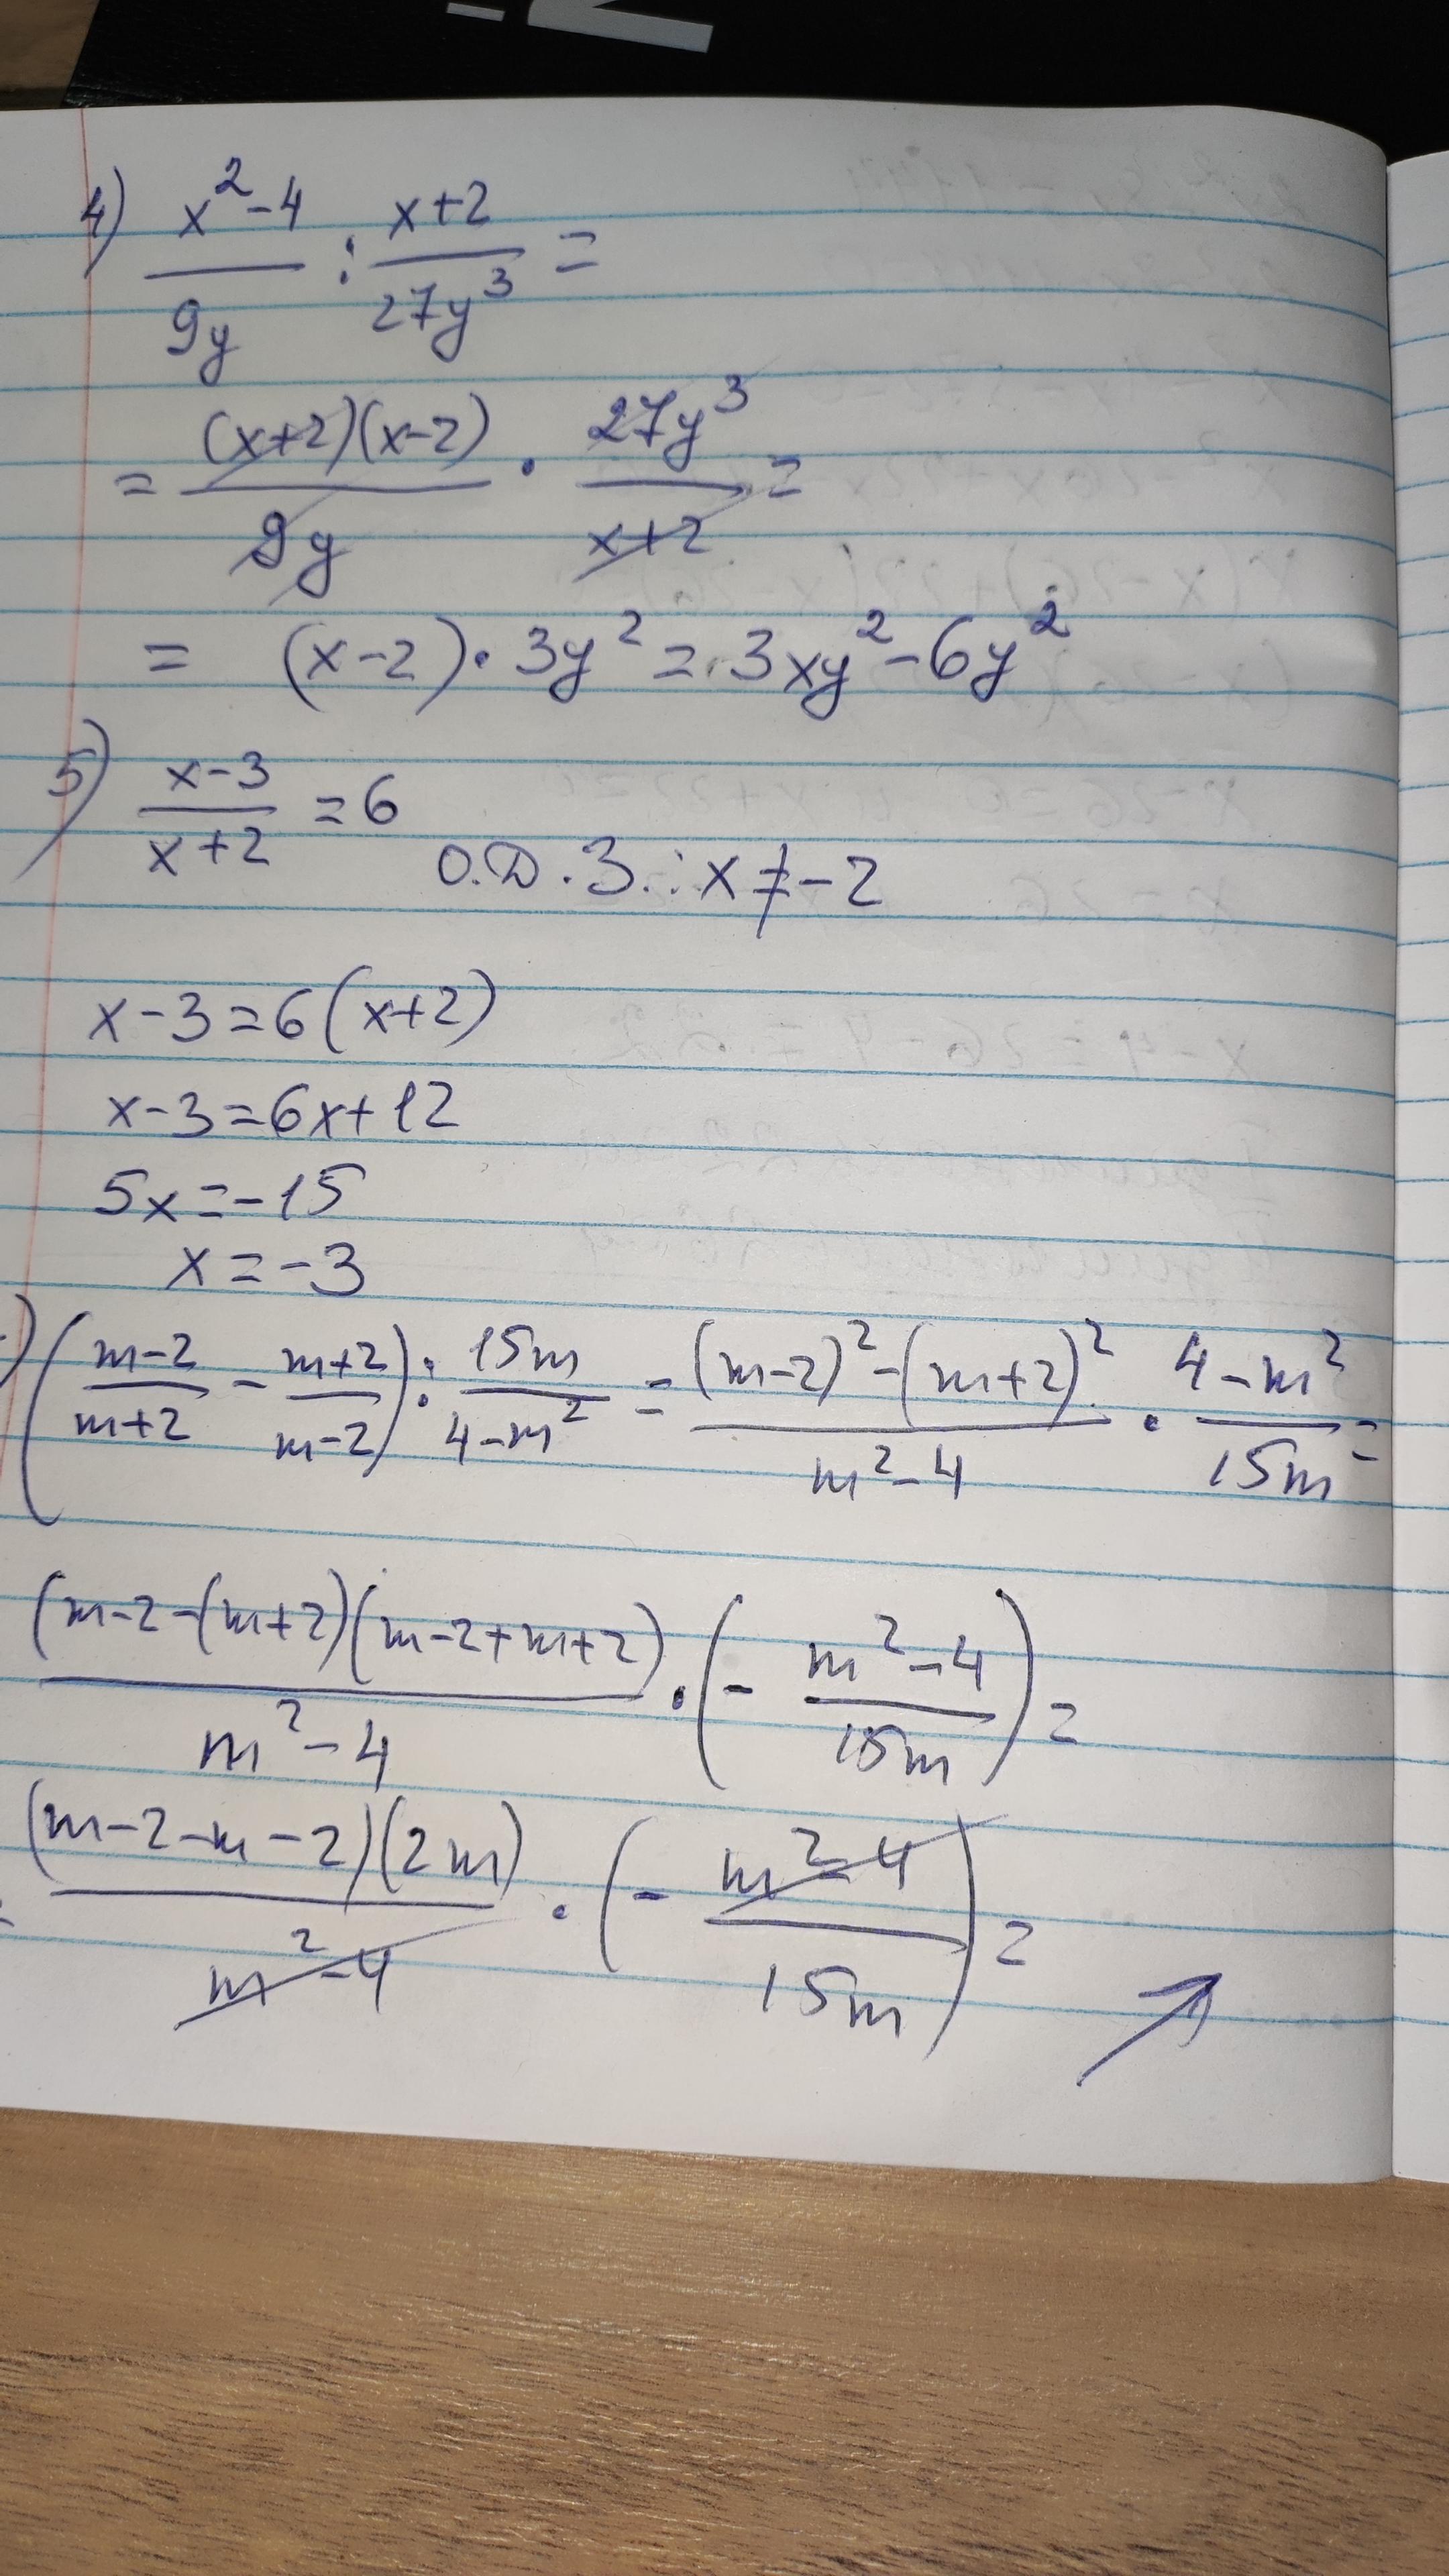 4) (x²-4)/(9y) : (x+2)/(27y³) =
= ((x+2)(x-2))/(9y) · (27y³)/(x+2) =
= (x-2)·3y² = 3xy²-6y²
5) (x-3)/(x+2) = 6
О.D.З.: x≠-2
x-3=6(x+2)
x-3=6x+12
5x=-15
x=-3
) ((m-2)/(m+2) - (m+2)/(m-2)) : (15m)/(4-m²) = ((m-2)²-(m+2)²)/(m²-4) · (4-m²)/(15m) =
((m-2-(m+2)(m-2+m+2))/(m²-4) · (- (m²-4)/(15m)) =
= ((m-2-m-2)(2m))/(m²-4) · (- (m²-4)/(15m)) =